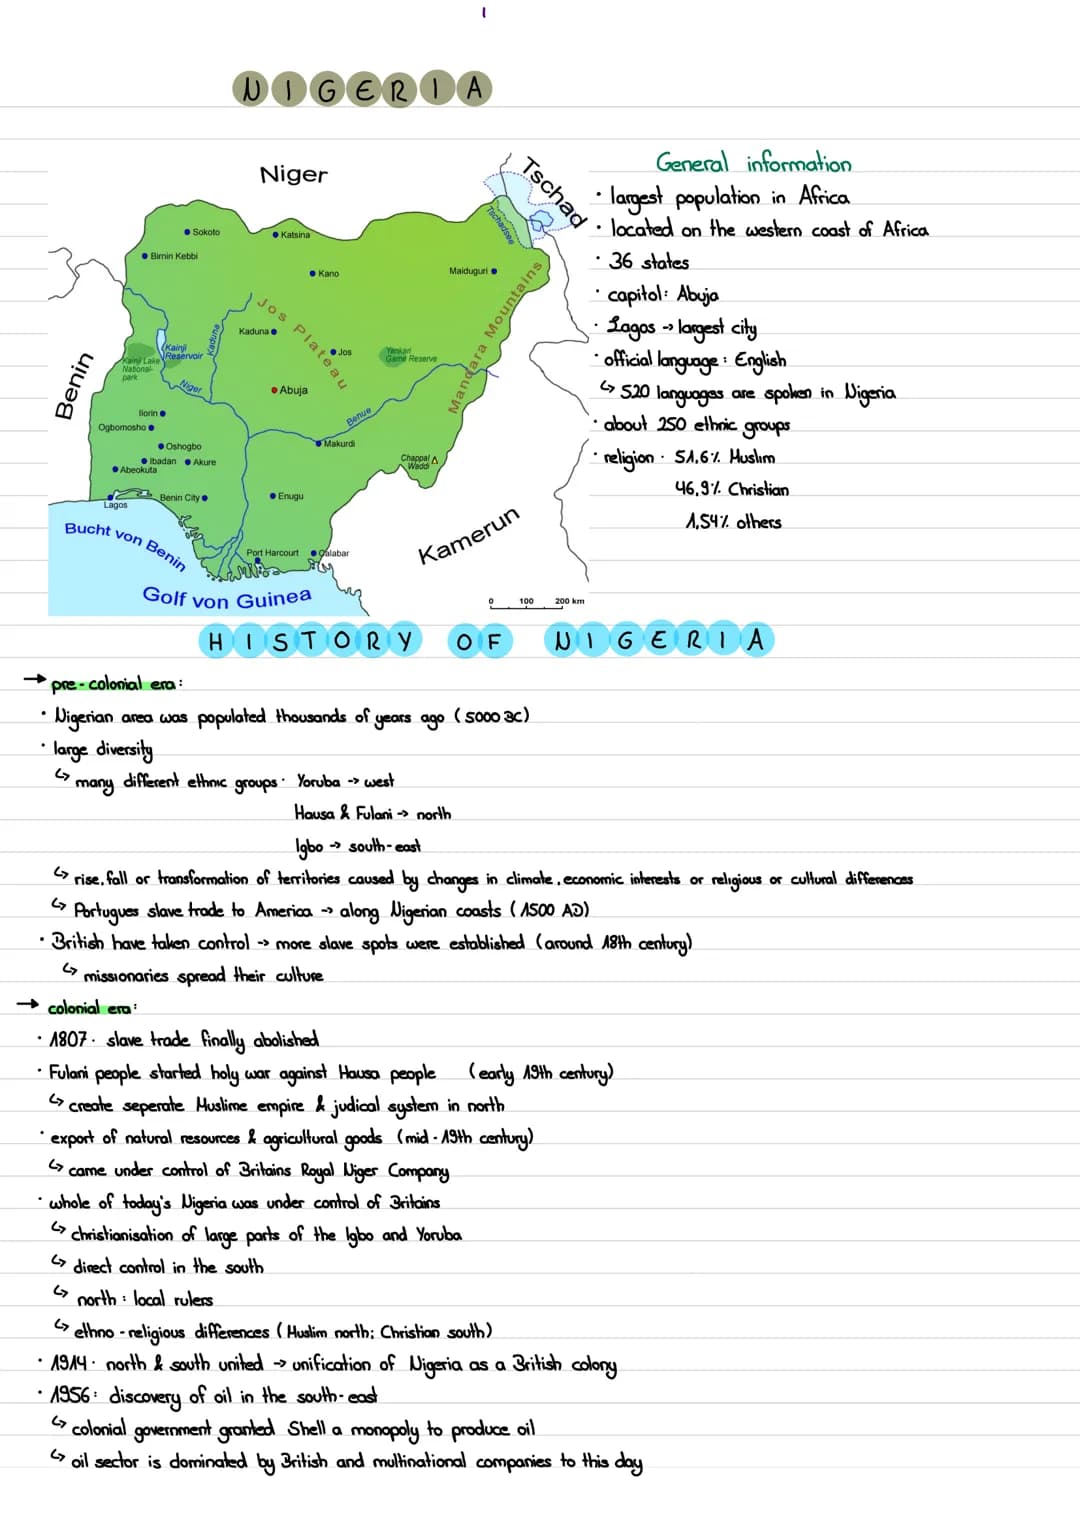 1
NIGERIA
Niger
Tschad
Tschadsee
Sokoto
Katsina
Birnin Kebbi
Kano
Maiduguri
Jos Plateau
Mandara Mountains
Kaduna
Kaduna
Kainji
Reservoir
Kainji Lake
National-
park
Jos
Yankari
Game Reserve
Benin
Niger
Abuja
Benue
Ilorin
Ogbomosho
Oshogbo
Makurdi
Ibadan
Akure
Abeokuta
Chappal
Waddi
Lagos
Benin City
Enugu
Kamerun
Bucht von Benin
Port Harcourt
Calabar
Golf von Guinea
0 100 200 km
General information
· largest population in Africa
· located on the western coast of Africa
· 36 states
· capitol: Abuja
· Lagos -> largest city
· official language: English
↳ 520 languages are spoken in Nigeria
· about 250 ethnic groups
· religion: 51,6% Muslim
46,9% Christian
1,54% others
HISTORY OF NIGERIA
→ pre-colonial era:
· Nigerian area was populated thousands of years ago (5000 BC)
· large diversity
↳ many different ethnic groups: Yoruba -> west
Hausa & Fulani -> north
Igbo -> south-east
↳ rise, fall or transformation of territories caused by changes in climate, economic interests or religious or cultural differences
↳ Portugues slave trade to America -> along Nigerian coasts (1500 AD)
· British have taken control -> more slave spots were established (around 18th century)
↳ missionaries spread their culture
→ colonial era:
· 1807: slave trade finally abolished
· Fulani people started holy war against Hausa people (early 19th century)
↳ create seperate Muslime empire & judical system in north
· export of natural resources & agricultural goods (mid-19th century)
↳ came under control of Britains Royal Niger Company
· whole of today's Nigeria was under control of Britains
↳ christianisation of large parts of the Igbo and Yoruba
↳ direct control in the south
↳ north: local rulers
↳ ethno-religious differences (Muslim north; Christian south)
· 1914: north & south united -> unification of Nigeria as a British colony
· 1956: discovery of oil in the south-east
↳ colonial government granted Shell a monopoly to produce oil
↳ oil sector is dominated by British and multinational companies to this day